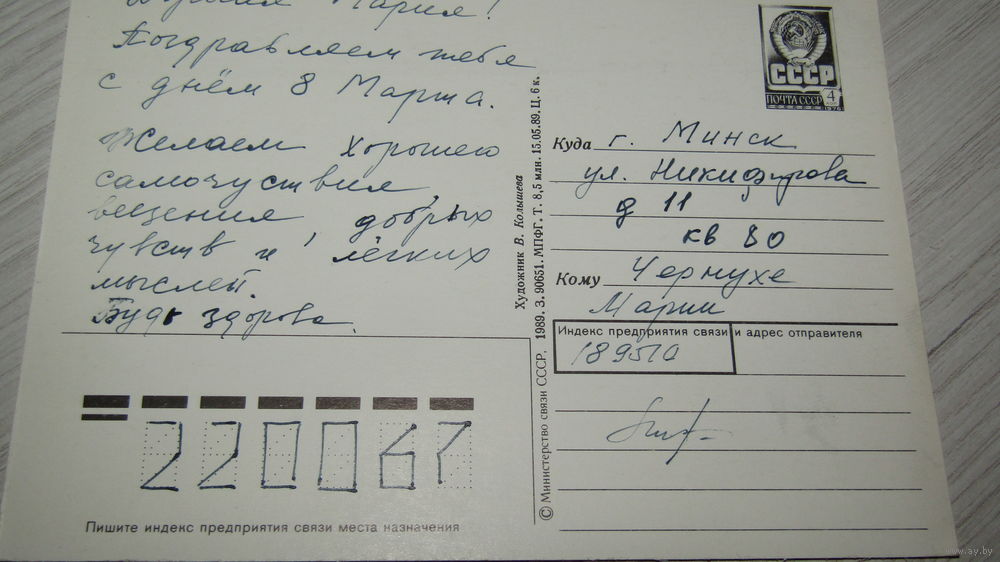 Мария!
Поздравляем тебя
с днём 8 Марта.
Желаем хорошего
самочуствия,
вещения добрых
чувств и лёгких
мыслей.
Будь здорова.
СССР
ПОЧТА СССР
4
Куда г. Минск
ул. Никифорова
д 11
кв 80
Кому Чернухе
Марии
Индекс предприятия связи и адрес отправителя
189510
Художник В. Колышева
© Министерство связи СССР. 1989. З. 90651. МПФГ. Т. 8,5 млн. 15.05.89. Ц. 6 к.
Пишите индекс предприятия связи места назначения
www.ay.by